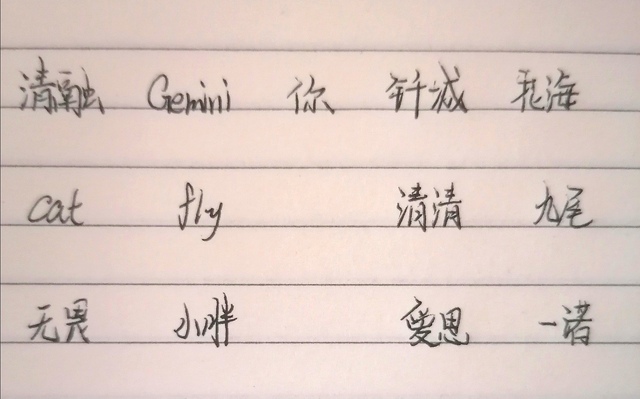 清融 Gemini 你 钎城 北海
cat fly 清清 九尾
无畏 小胖 爱思 一诺